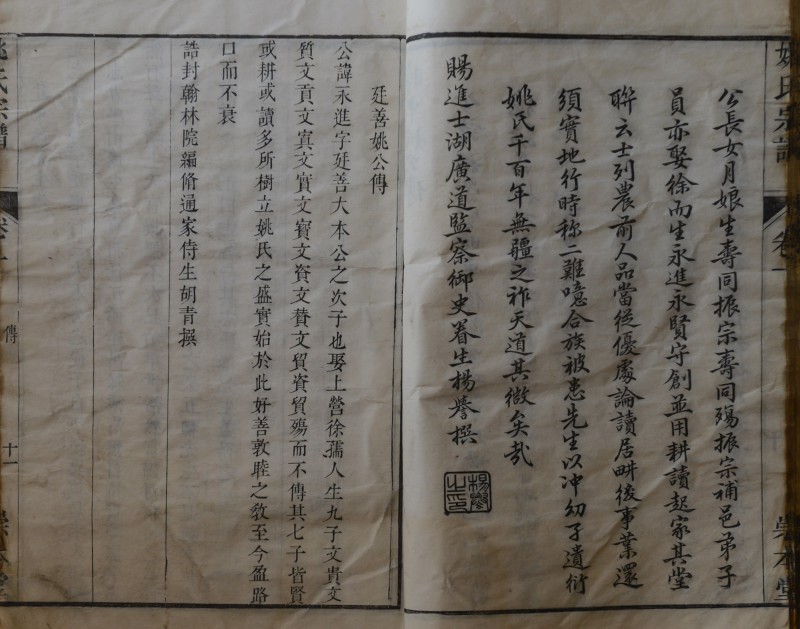 姚氏宗譜
卷一
崇本堂
公長女月娘生壽同振宗壽同殤振宗補邑弟子
員亦娶徐而生永進永賢守創並用耕讀起家其堂
聯云士列農前人品當從優處論讀居畊後事業還
須實地行時称二難噫合族被患先生以冲幼子遺衍
姚氏千百年無疆之祚天道其微矣哉
賜進士湖廣道監察御史眷生楊譽撰
楊譽之印
廷善姚公傳
公諱永進字廷善大本公之次子也娶上營徐孺人生九子文貴文
質文貢文寘文實文寳文資文賛文貿資貿殤而不傳其七子皆賢
或耕或讀多所樹立姚氏之盛實始於此好善敦睦之教至今盈路
口而不衰
誥封翰林院編脩通家侍生胡青撰
姚氏宗譜
傳
十一
崇本堂